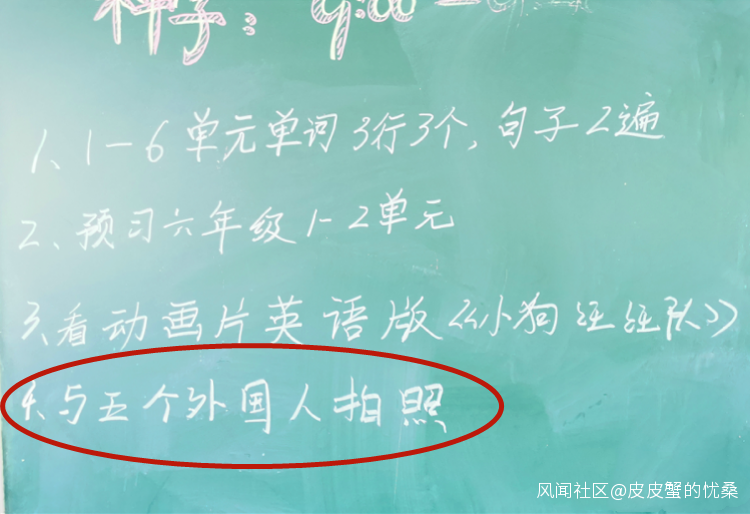 科学：9:00—
1、1－6单元单词3行3个，句子2遍
2、预习六年级1-2单元
3、看动画片英语版《小狗汪汪队》
4、与五个外国人拍照
风闻社区@皮皮蟹的忧桑